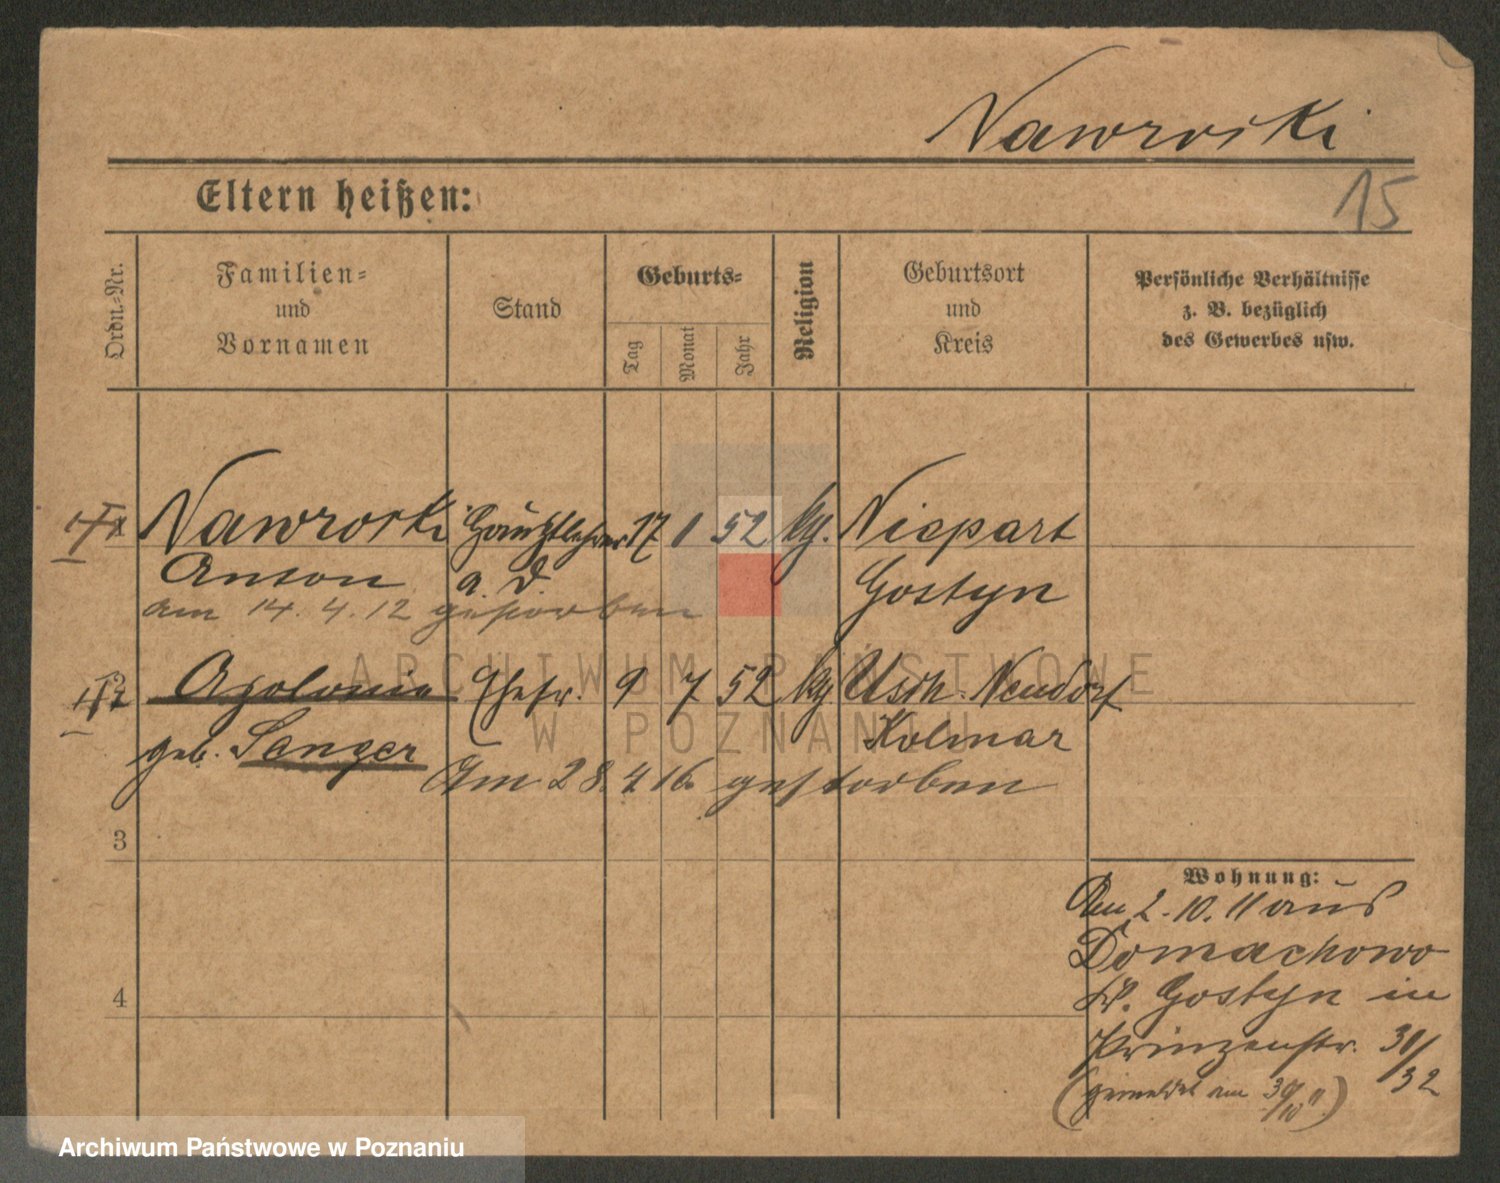 Nawrocki
15
Eltern heißen:
Ordn.-Nr.
Familien- und Vornamen
Stand
Geburts-
Tag
Monat
Jahr
Religion
Geburtsort und Kreis
Persönliche Verhältnisse
z. B. bezüglich
des Gewerbes usw.
Nawrocki Hauptlehrer 17 1 52 kg. Niepart
Anton a. D. Gostyn
am 14. 4. 12 gestorben
Apolonia Ehefr. 9 7 52 kg. Usch-Neudorf
geb. Sanger Kolmar
Am 28. 4 16 gestorben
3
4
Wohnung:
Am 2. 10. 11 aus
Domachowo
Kr. Gostyn in
Prinzenstr. 31/32
(gemeldet am 30/10 11.)
ARCHIWUM PAŃSTWOWE
W POZNANIU
Archiwum Państwowe w Poznaniu